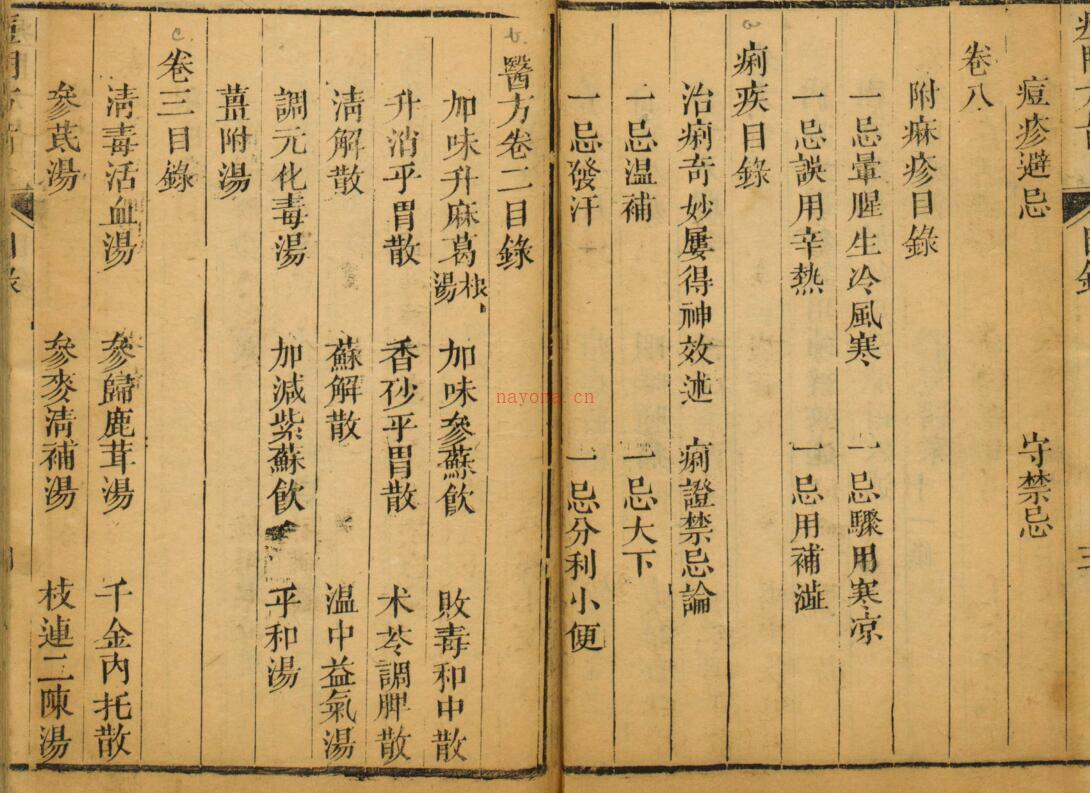 痘疹避忌 守禁忌
卷八
附麻疹目錄
一忌暈腥生冷風寒 一忌驟用寒凉
一忌誤用辛熱 一忌用補澁
a
痢疾目錄
治痢奇妙屢得神效述 痢證禁忌論
一忌温補 一忌大下
一忌發汗 一忌分利小便
b.
醫方卷二目錄
加味升麻葛根湯 加味參蘇飲 敗毒和中散
升消平胃散 香砂平胃散 术苓調脾散
清解散 蘇解散 温中益氣湯
調元化毒湯 加減紫蘇飲 平和湯
薑附湯
c.
卷三目錄
清毒活血湯 參歸鹿茸湯 千金內托散
參芪湯 參麥清補湯 枝連二陳湯
目錄
nayona.cn